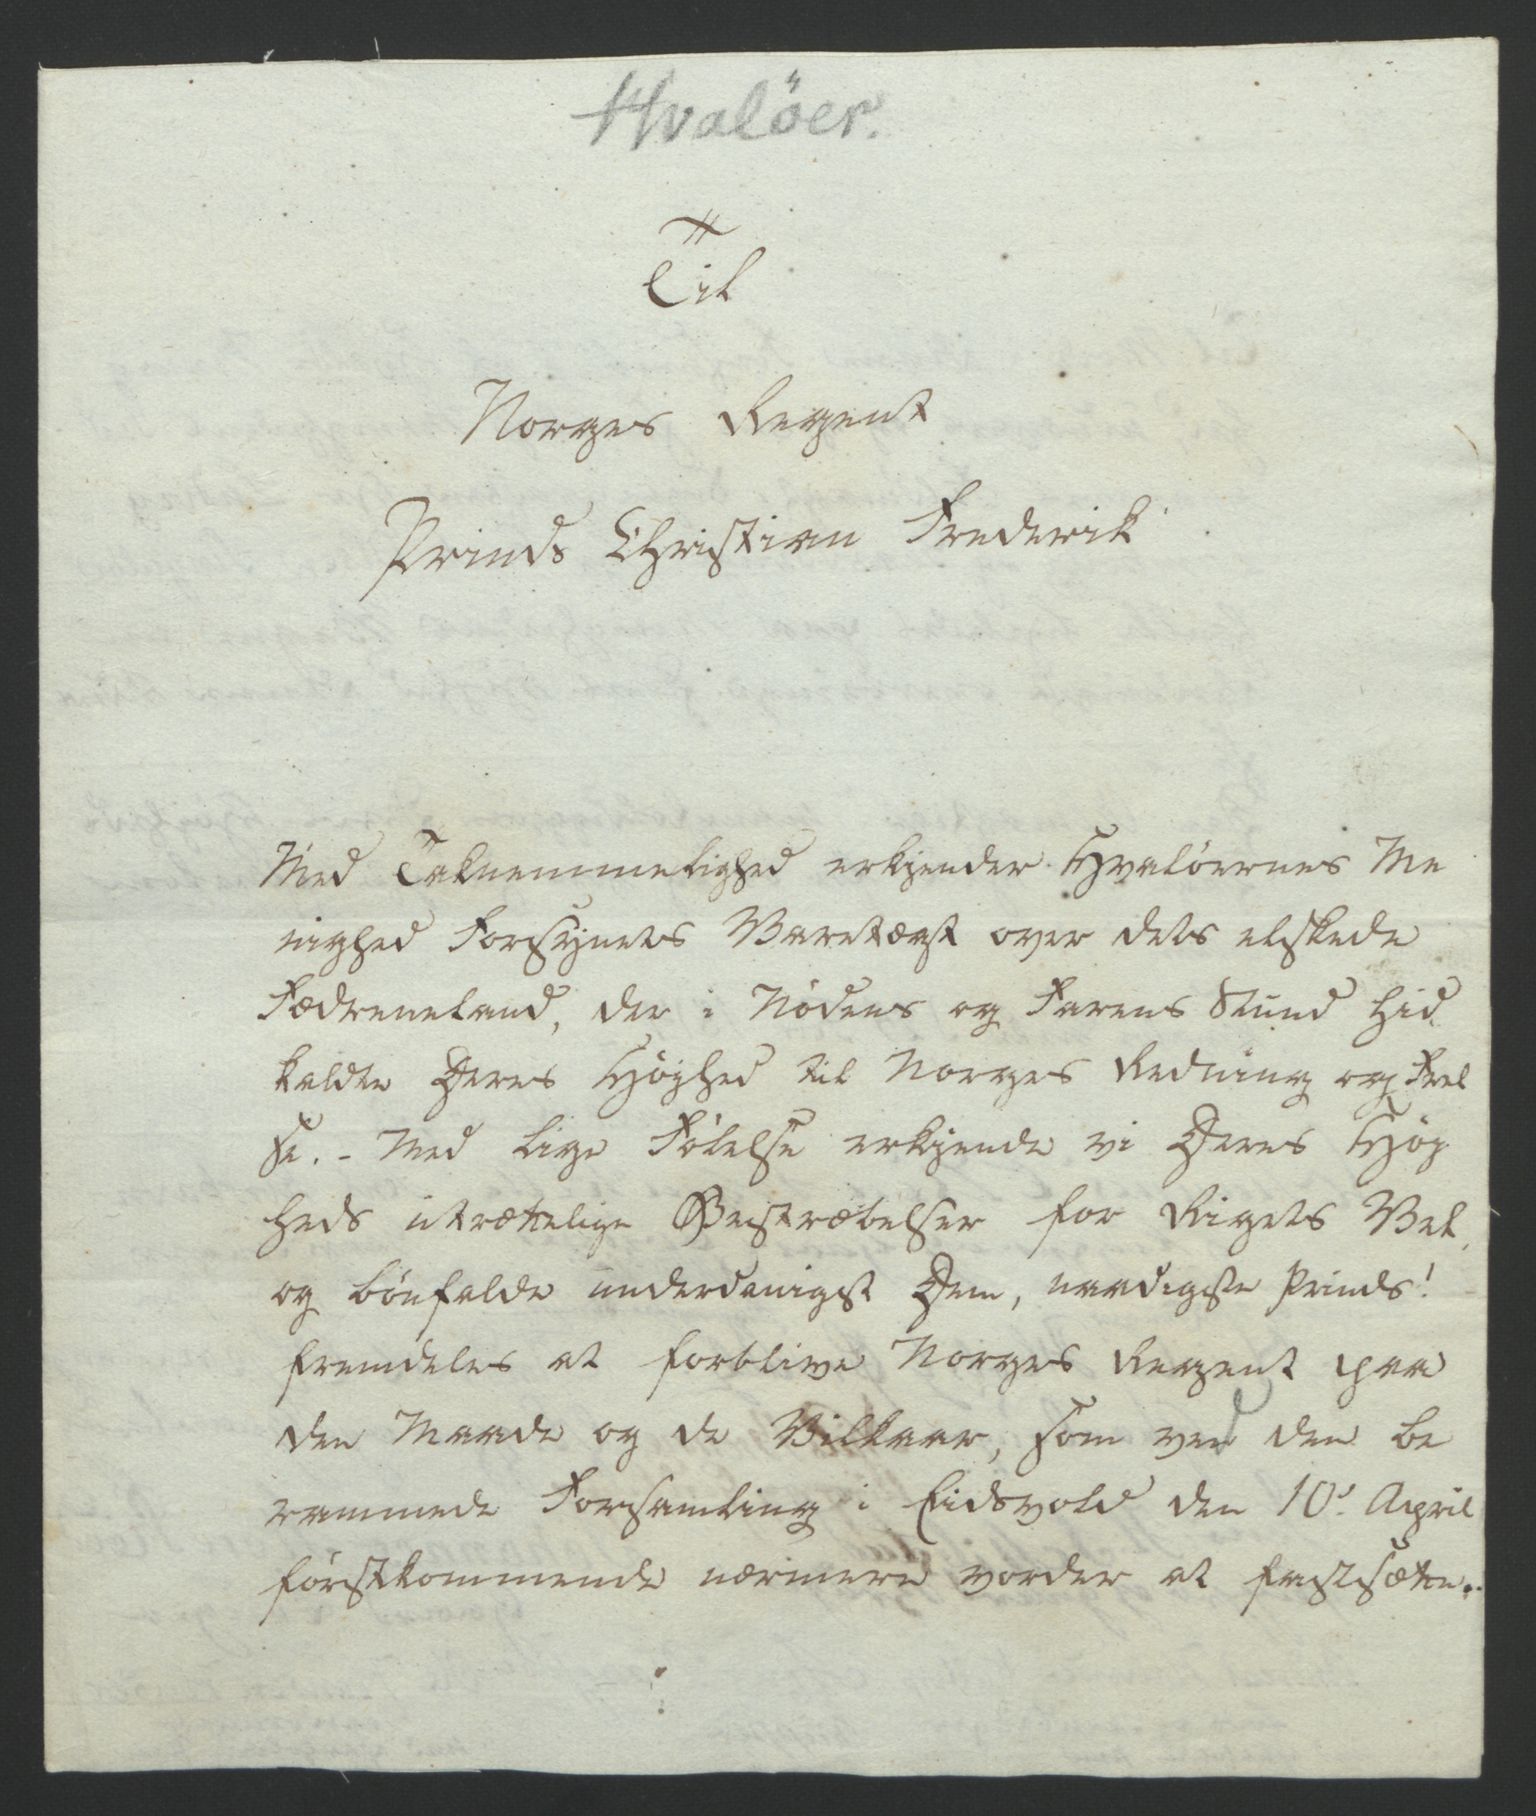 Hvalöer.
Til
Norges Regent
Prinds Christian Frederik
Med Taknemmelighed erkjender Hvalöernes Me
nighed Forsynets Varetægt over dets elskede
Fædreneland, der i Nödens og Farens Stund hid
kaldte Deres Höghed til Norges Redning og Frel
se. - Med lige Fölelse erkjende vi Deres Hög
heds utrættelige Bestræbelser for Rigets Vel,
og bönfalde underdanigst Dem, naadigste Prinds!
fremdeles at forblive Norges Regent paa
den Maade og de Vilkaar, som ved den be
rammede Forsamling i Eidsvold den 10d. April
förstkommende nærmere vorder at fastsætte.